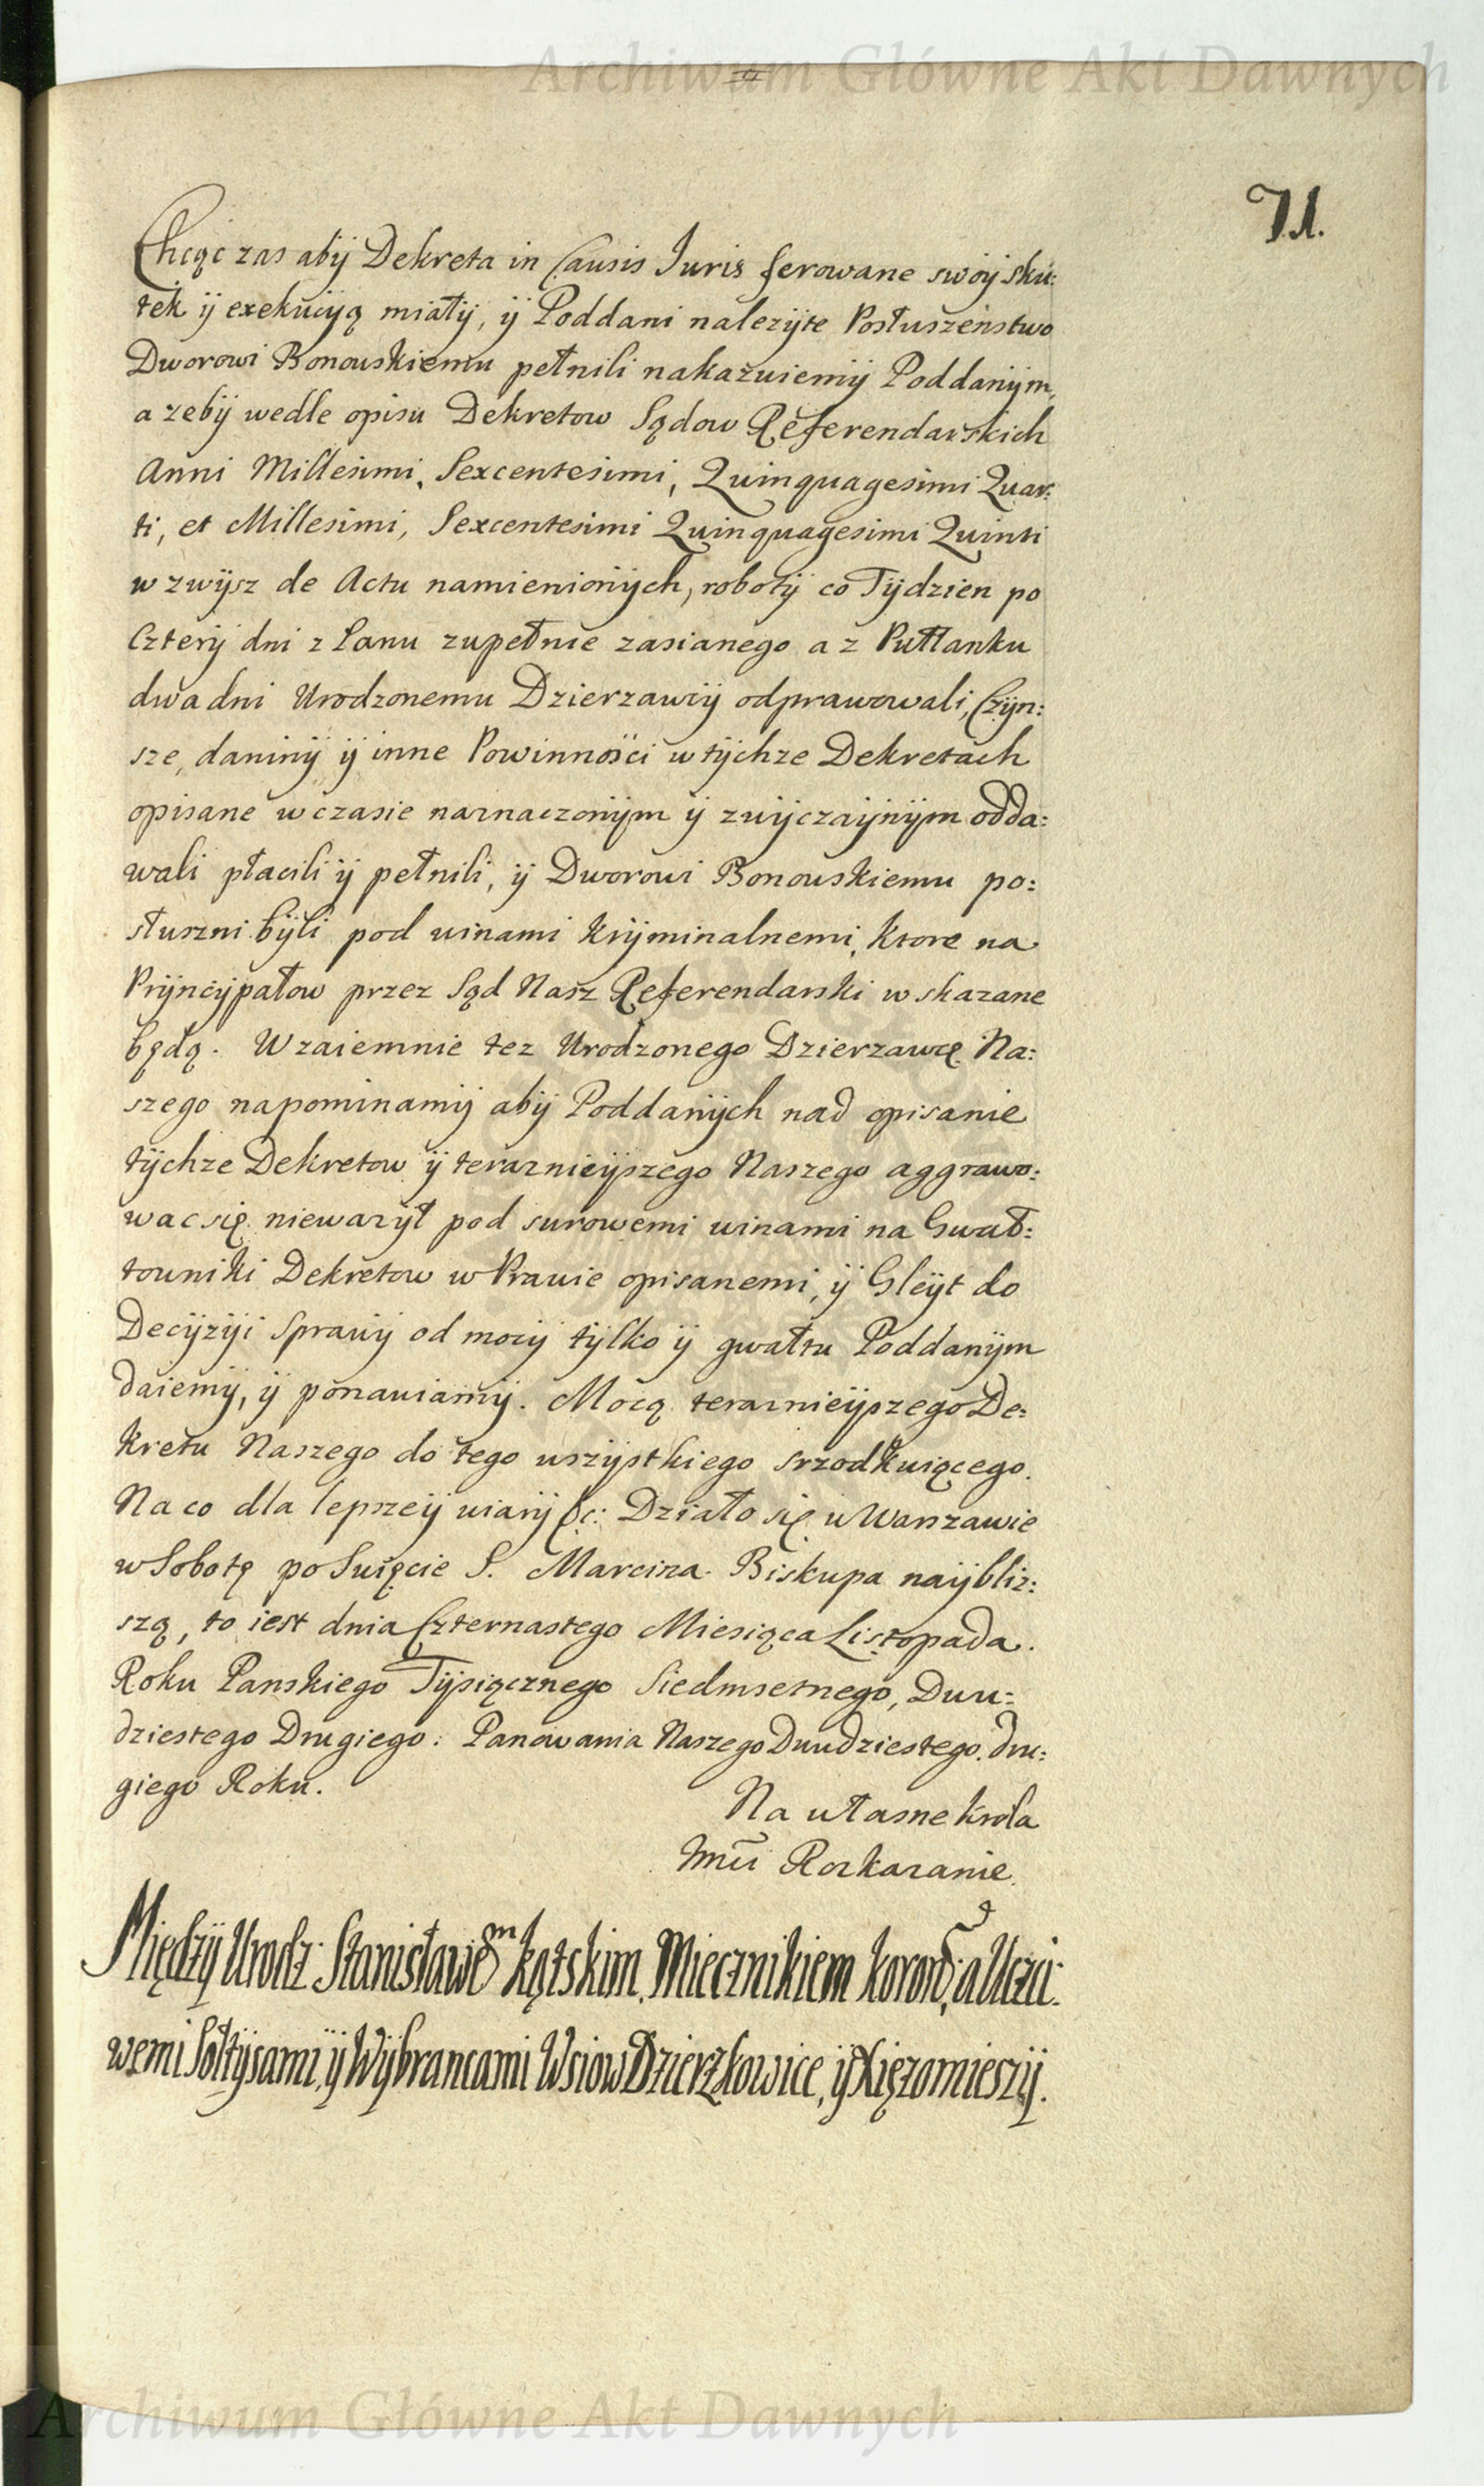 Archiwum Główne Akt Dawnych
71.
Chcąc zas abÿ Dekreta in Causis Iuris ferowane swóÿ sku:
tek ÿ exekucÿą miałÿ, ÿ Poddani nalezÿte Posłuszenstwo
Dworowi Bonowskiemu pełnili nakazuiemÿ Poddanÿm,
a zebÿ wedle opisu Dekretow Sądow Referendarskich
Anni Millesimi, Sexcentesimi, Quinquagesimi Quar:
ti, et Millesimi, Sexcentesimi Quinquagesimi Quinti
w zwÿsz de Actu namienionÿch, robotÿ co Tÿdzien po
Czterÿ dni z Łanu zupełnie zasianego a z Pułłanku
dwa dni Urodzonemu Dzierzawcÿ odprawowali, Czÿn:
sze, daninÿ ÿ inne Powinności w tÿchze Dekretach
opisane w czasie naznaczonÿm ÿ zwÿczaÿnÿm odda:
wali płacili ÿ pełnili, ÿ Dworowi Bonowskiemu po:
słuszni bÿli pod winami krÿminalnemi, ktore na
Prÿncÿpałow przez Sąd Nasz Referendarski wskazane
będą. Wzaiemnie tez Urodzonego Dzierzawcę Na:
szego napominamÿ abÿ Poddanÿch nad opisanie
tÿchze Dekretow ÿ teraznieÿszego Naszego aggrawo:
wac się niewazÿł pod surowemi winami na Gwał:
towniki Dekretow w Prawie opisanemi, ÿ Gleÿt do
Decÿzÿi Sprawÿ od mocÿ tÿlko ÿ gwałtu Poddanÿm
daiemÿ, ÿ ponawiamÿ. Mocą teraznieÿszego De:
kretu Naszego do tego wszÿstkiego srzodkuiącego.
Na co dla lepszeÿ wiarÿ &c: Działo się w Warszawie
w Sobotę po Swięcie S. Marcina Biskupa naÿbliz:
szą, to iest dnia Czternastego Miesiąca Listopada.
Roku Panskiego Tÿsiącznego Siedmsetnego, Dwu:
dziestego Drugiego: Panowania Naszego Dwudziestego dru:
giego Roku.
Na własne krola
Imci Rozkazanie.
Międzÿ Urodz: Stanisławem kątskim, Miecznikiem koron:, a Uczci:
wemi Sołtÿsami, ÿ Wÿbrancami Wsiow Dzierzkowice, ÿ Xięzomieszÿ.
Archiwum Główne Akt Dawnych